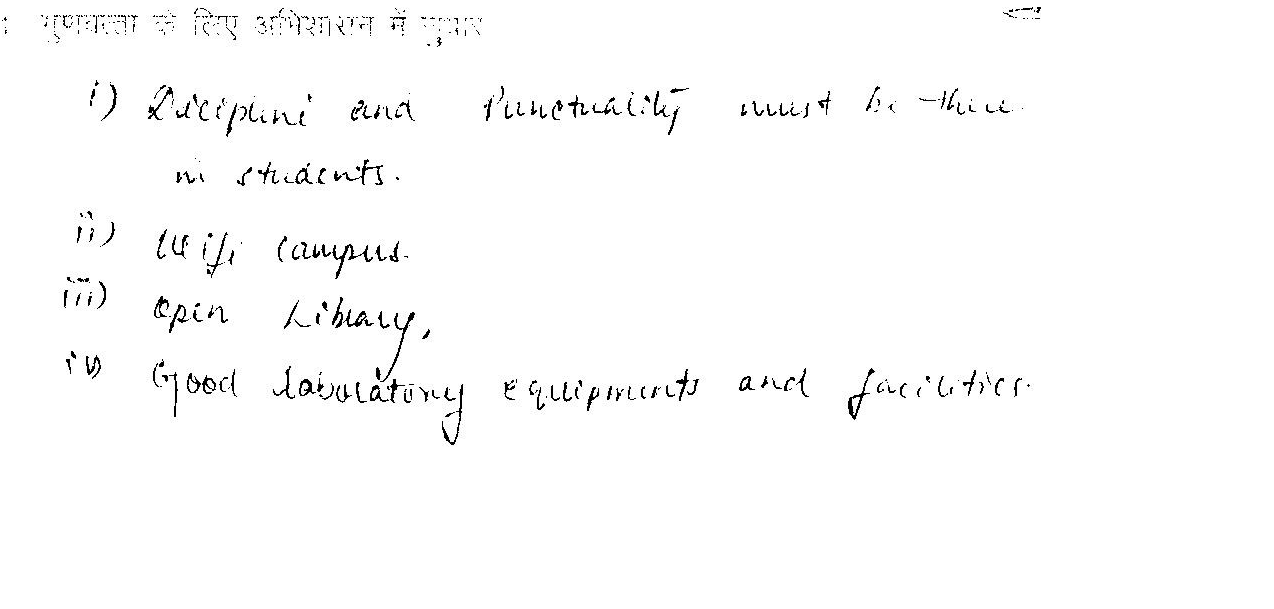 गुणवत्ता के लिए अभिशासन में सुधार
i) Discipline and Punctuality must be there
in students.
ii) Wifi campus.
iii) Open Library,
iv) Good laboratory equipments and facilities.